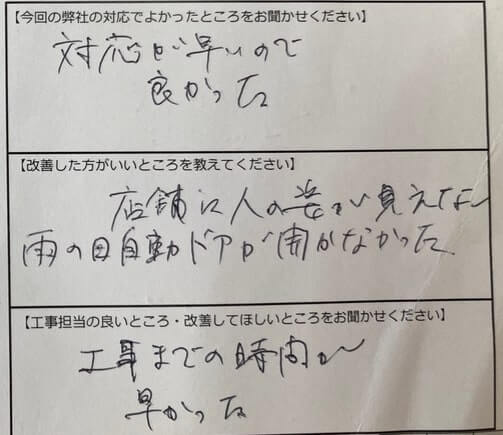 【今回の弊社の対応でよかったところをお聞かせください】
対応が早いので
良かった
【改善した方がいいところを教えてください】
店舗に人の姿が見えない
雨の日自動ドアが開かなかった
【工事担当の良いところ・改善してほしいところをお聞かせください】
工事までの時間が
早かった